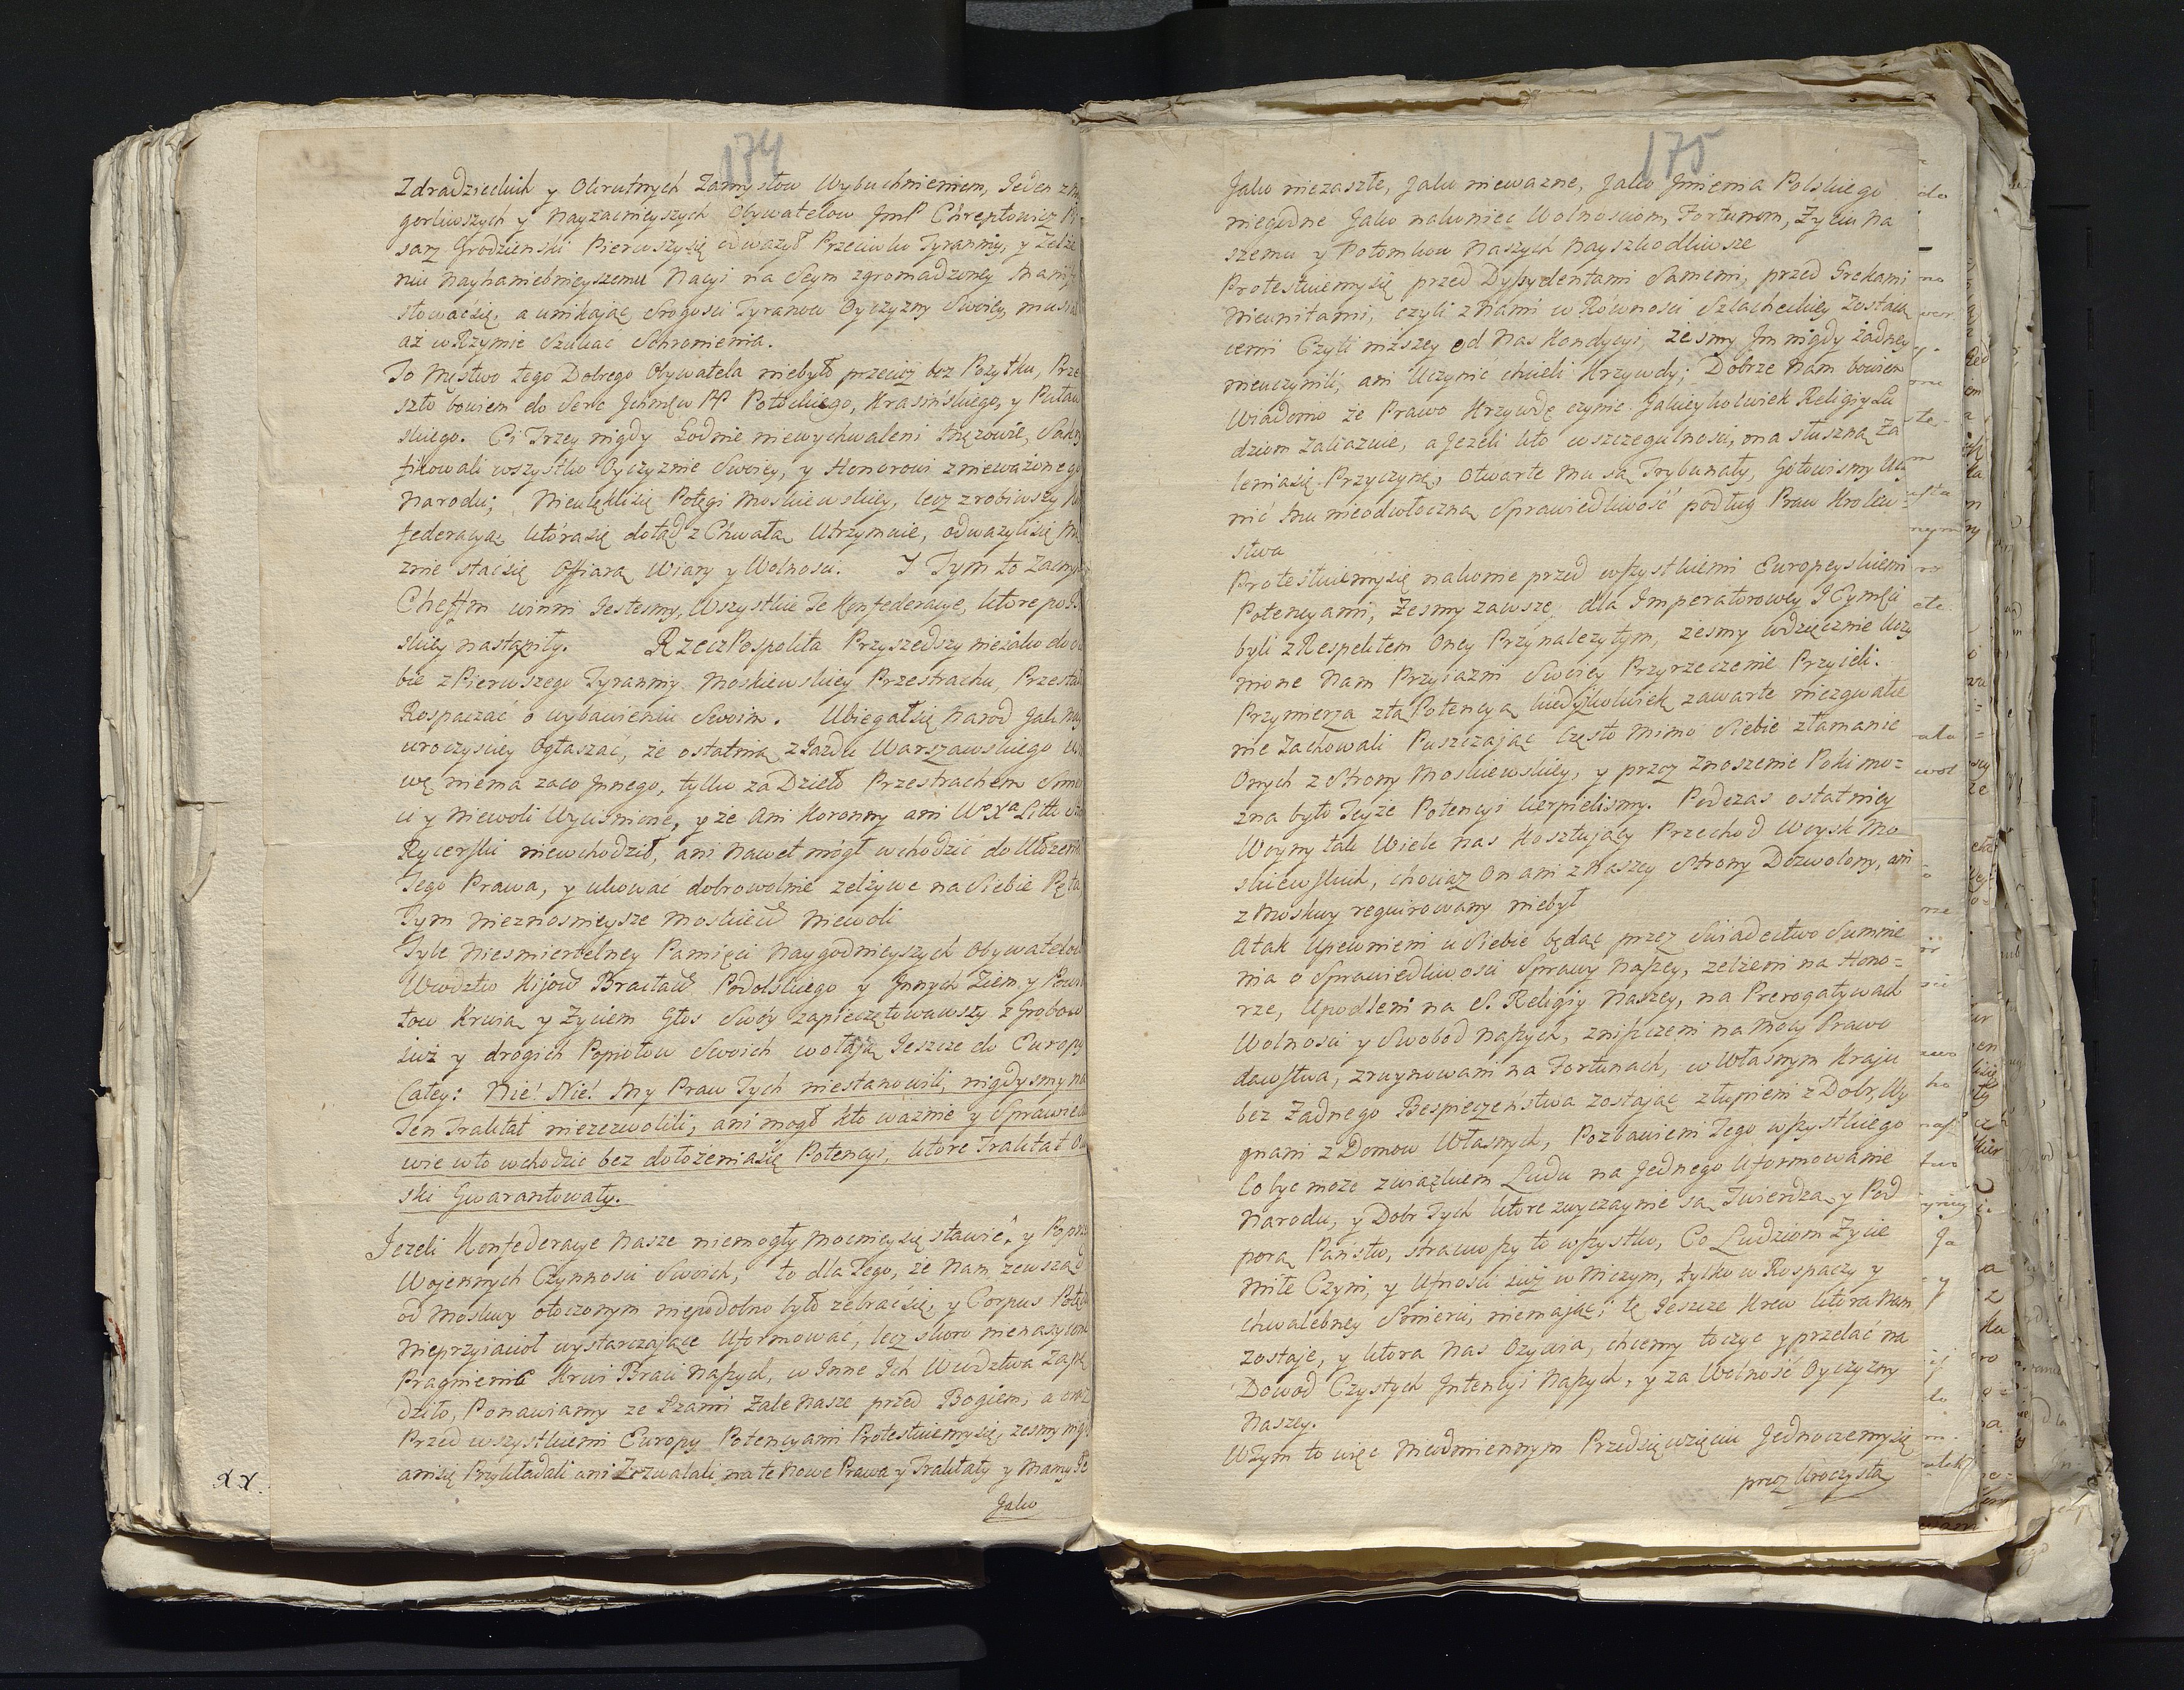 174
Zdradzieckich y Okrutnych Zamysłow Wybuchnieniem, Jeden z na
gorliwszych y Nayzacnieyszych Obywatelow JmP Chreptowicz Pi
sarz Grodzienski Pierwszy się odważył Przeciwko Tyranniy, y Zelże
niu Nayhaniebnieyszemu Nacyi na Seym zgromadzoney Manife
stować się, a unikaiąc Srogosci Tyranow Oyczyzny Swoiey, musiał
aż w Rzymie Szukac Schronienia.
To Męstwo tego Dobrego Obywatela niebyło przecięż bez Pożytku, Prze
szło bowiem do Serc Jchmćw PP Potockiego, Krasinskiego, y Puław
skiego. Ci Trzey nigdy Godnie niewychwaleni Mężowie, Sakry
fikowali wszystko Oyczyznie Swoiey, y Honorowi znieważonego
Narodu; Nieulękli się Potęgi Moskiewskiey, lecz zrobiwszy Kon
federacyą, która się dotąd z Chwałą Utrzymuie, odważyli się Mę
znie stać się Offiarą Wiary y Wolnosci. I Tym to Zacny
Cheffm winni Jestesmy, Wszystkie Te Konfederacye, ktore po
skiey nastąpiły. RzeczPospolita Przyszedszy nieiako do sie
bie z Pierwszego Tyranniy Moskiewskiey Przestrachu, Przestał
Rospaczać o wybawieniu Swoim. Ubiegał się Narod Jak nay
uroczysciey Ogłaszać, że ostatnią z Jazdu Warszawskiego U
wę niema zaco Jnnego, tylko za Dzieło Przestrachem Smier
ci y Niewoli Wycisnione, y że Ani Koronny ani WoXa Litt
Rycerski niewchodził, ani Nawet mógł wchodzić do Ułożenia
Tego Prawa, y ukować dobrowolnie zelżywe na Siebie Pęta,
Tym Nieznosnieysze Moskiew Niewoli
Tyle Niesmiertelney Pamięci Naygodnieyszych Obywatelow
Wwdztw Kijow Bracław Podolskiego y Jnnych Ziem, y Powia
tow Krwią y Życiem Głos Swóy zapieczętowawszy z Grobow
iuż y drogich Popiołow Swoich wołają Jeszcze do Europy
Całey: Nie! Nie! My Praw Tych niestanowili, nigdysmy na
Ten Traktat niezezwolili, ani mogł kto ważnie y Sprawiedli
wie wto wchodzic bez dołożenia się Potencyi, ktore Traktat O
ski Gwarantowały.
Jeżeli Konfederacye Nasze niemogły Mocniey się stawić, y Popr
Wojennych Czynnosci Swoich, to dla Tego, że Nam zewsząd
od Moskwy otoczonym niepodobno było zebrac się, y Corpus Potęd
Nieprzyiacioł wystarczające Uformować, lecz skoro nienasycone
Pragnienie Krwi Braci Naszych, w Inne Ich Wwdztwa Zapę
dziło, Ponawiamy ze Łzami Żale Nasze przed Bogiem, a oraz
Przed wszystkiemi Europy Potencyami Protestuiemy się, zesmy nigdy
ani się Przykładali ani Zezwalali na te Nowe Prawa y Traktaty y Mamy Je
XX.
Jako
175
Jako niezaszłe, Jako nieważne, Jako Jmienia Polskiego
niegodne Jako nakoniec Wolnosciom, Fortunom, Życiu Na
szemu y Potomkow Naszych Nayszkodliwsze
Protestuiemy się przed Dyssydentami Samemi, przed Grekami
Nieunitami, czyli z Nami w Równosci Szlacheckiey Zostaią
cemi Czyli niższey od Nas Kondycyi, że smy Jm nigdy żadney
nieuczynili, ani Uczynić chcieli Krzywdy; Dobrze Nam bowiem
Wiadomo że Prawo Krzywdę czynic Jakieykolwiek Religiy Lu
dziom Zakazuie, a Jezeli kto w szczegulnosci, ma słuszną Ża
lenia się Przyczynę, otwarte mu są Trybunały, Gotowismy Uczy
nić Mu nieodwłoczną Sprawiedliwość podług Praw Krolew-
stwa
Protestuiemy się nakonie przed wszystkiemi Europeyskiemi
Potencyami, Żesmy zawsze dla Imperatorowey JCymści
byli z Respektem Oney Przynależytym, żesmy wdzięcznie Uczy
nione Nam Przyiaźni Swoiey Przyrzeczenie Przyieli.
Przymierza z tą Potencyą kiedyżkolwiek zawarte niezgwałc
nie Zachowali Puszczając często Mimo Siebie złamanie
Onych z Strony Moskiewskiey, y przez Znoszenie Poki mo=
zna było Teyże Potencyi Cierpielismy. Podczas ostatniey
Woyny tak Wiele Nas Kosztujący Przechod Woysk Mo
skiewskich, chociaż On ani z Naszey Strony Dozwolony, ani
z Moskwy requirowany niebył
Atak Upewnieni u Siebie będąc przez Swiadectwo Sumnie
nia o Sprawiedliwosci Sprawy Naszey, zelżeni na Hono=
rze, Upodleni na S. Religiy Naszey, na Prerogatywach
Wolnosci y Swobod Naszych, zniszczeni na Mocy Prawo
dawstwa, zruynowani na Fortunach, w Własnym Kraju
bez Żadnego Bespieczeństwa zostając złupieni z Dobr, Wy
gnani z Domow Własnych, Pozbawieni Tego wszystkiego
Co byc może związkiem Ludu na Jednego Uformowanie
Narodu, y Dobr Tych ktore zwyczaynie są Twierdzą y Pod
porą Państw, straciwszy to wszystko, Co Ludziom Życie
Miłe Czyni, y Ufnosci iuż w Niczym, tylko w Rospaczy y
chwalebney Smierci, niemając; tę Jeszcze Krew ktora Nam
zostaje, y ktora Nas Ożywia, chcemy toczyc y przelać na
Dowod Czystych Jntencyi Naszych, y za Wolność Oyczyzny
Naszey.
W Tym to więc Nieodmiennym Przedsięwzięciu Jednoczemy się
przez Uroczystą